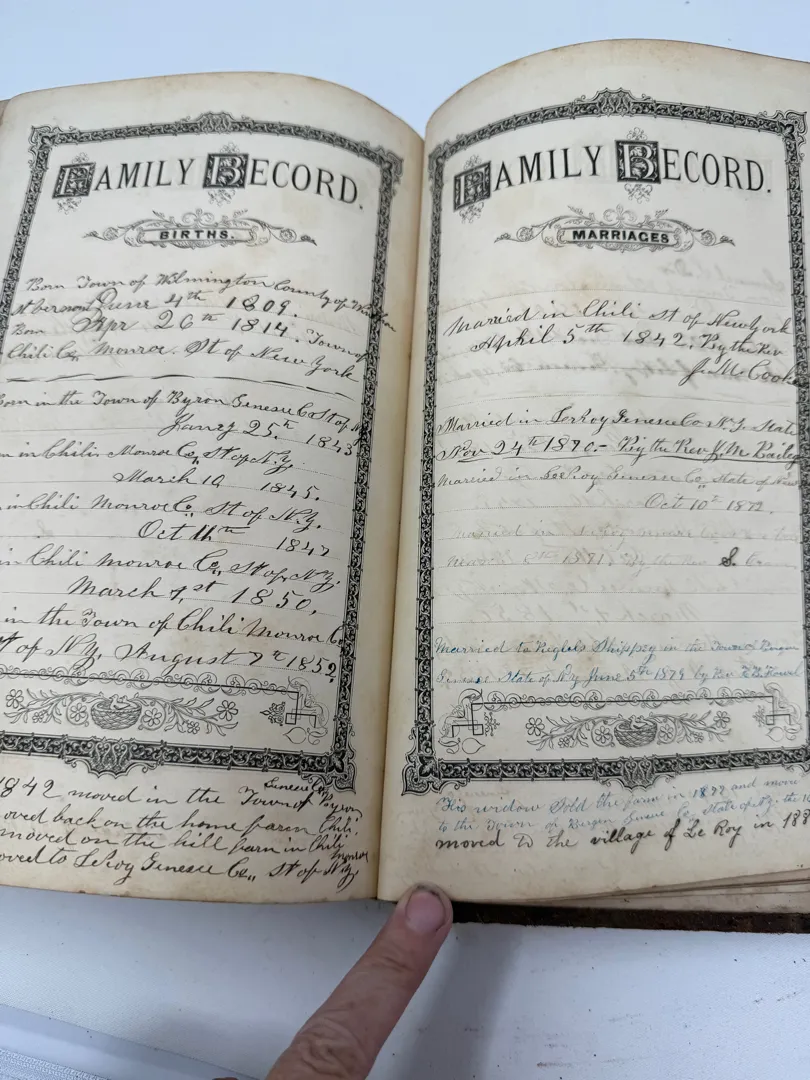 FAMILY RECORD.
BIRTHS.
Born Town of Wilmington County of
June 4th 1809.
Born Apr 26th 1814. Town of
Chili Co, Monroe. St of New York
Born in the Town of Byron Genesee Co St of N.Y.
Janry 25th 1843
in Chili Monroe Co,, St of N.Y.
March 10 1845.
in Chili Monroe Co,, St of N.Y.
Oct 11th 1847
in Chili Monroe Co,, St of, N.Y.
March 1st 1850.
in the Town of Chili Monroe Co,
St of N.Y, August 7th 1852,
1842 moved in the Town of Byron
Genesee Co
moved back on the home farm Chili.
moved on the hill farm in Chili
Monroe
moved to LeRoy Genesee Co,, St of N.Y,
FAMILY RECORD.
MARRIAGES
Married in Chili St of New York
April 5th 1842, By the Rev
J. M. Cook
Married in LeRoy Genesee Co N.Y. State
Nov 24th 1870.- By the Rev J. M. Bailey
Married in LeRoy Genesee Co,, State of New
Oct 10th 1872.
Married in
1871 By the Rev S.
Married to Shippy in the Town of Bergen
Genesee State of N.Y June 5th 1879 by Rev
His widow sold the farm in 1877 and moved
to the Town of Bergen Genesee Co State of N.Y. the
moved to the village of Le Roy in 188